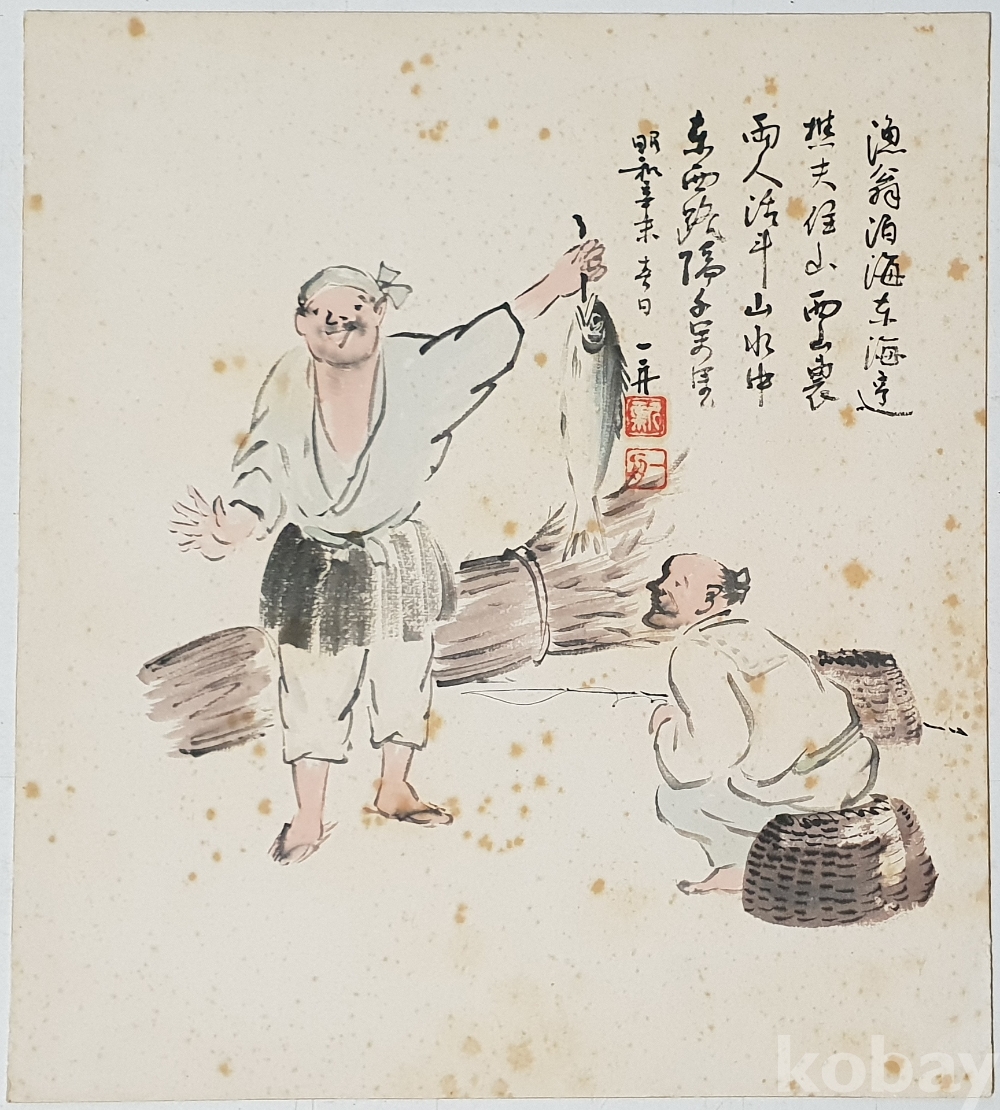 漁翁泊海東海邊
樵夫住山西山裏
兩人活計山水中
東西路隔千万里
昭和辛未春日 一舟
kobay